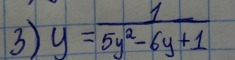 3) y = 1/(5y² - 6y + 1)